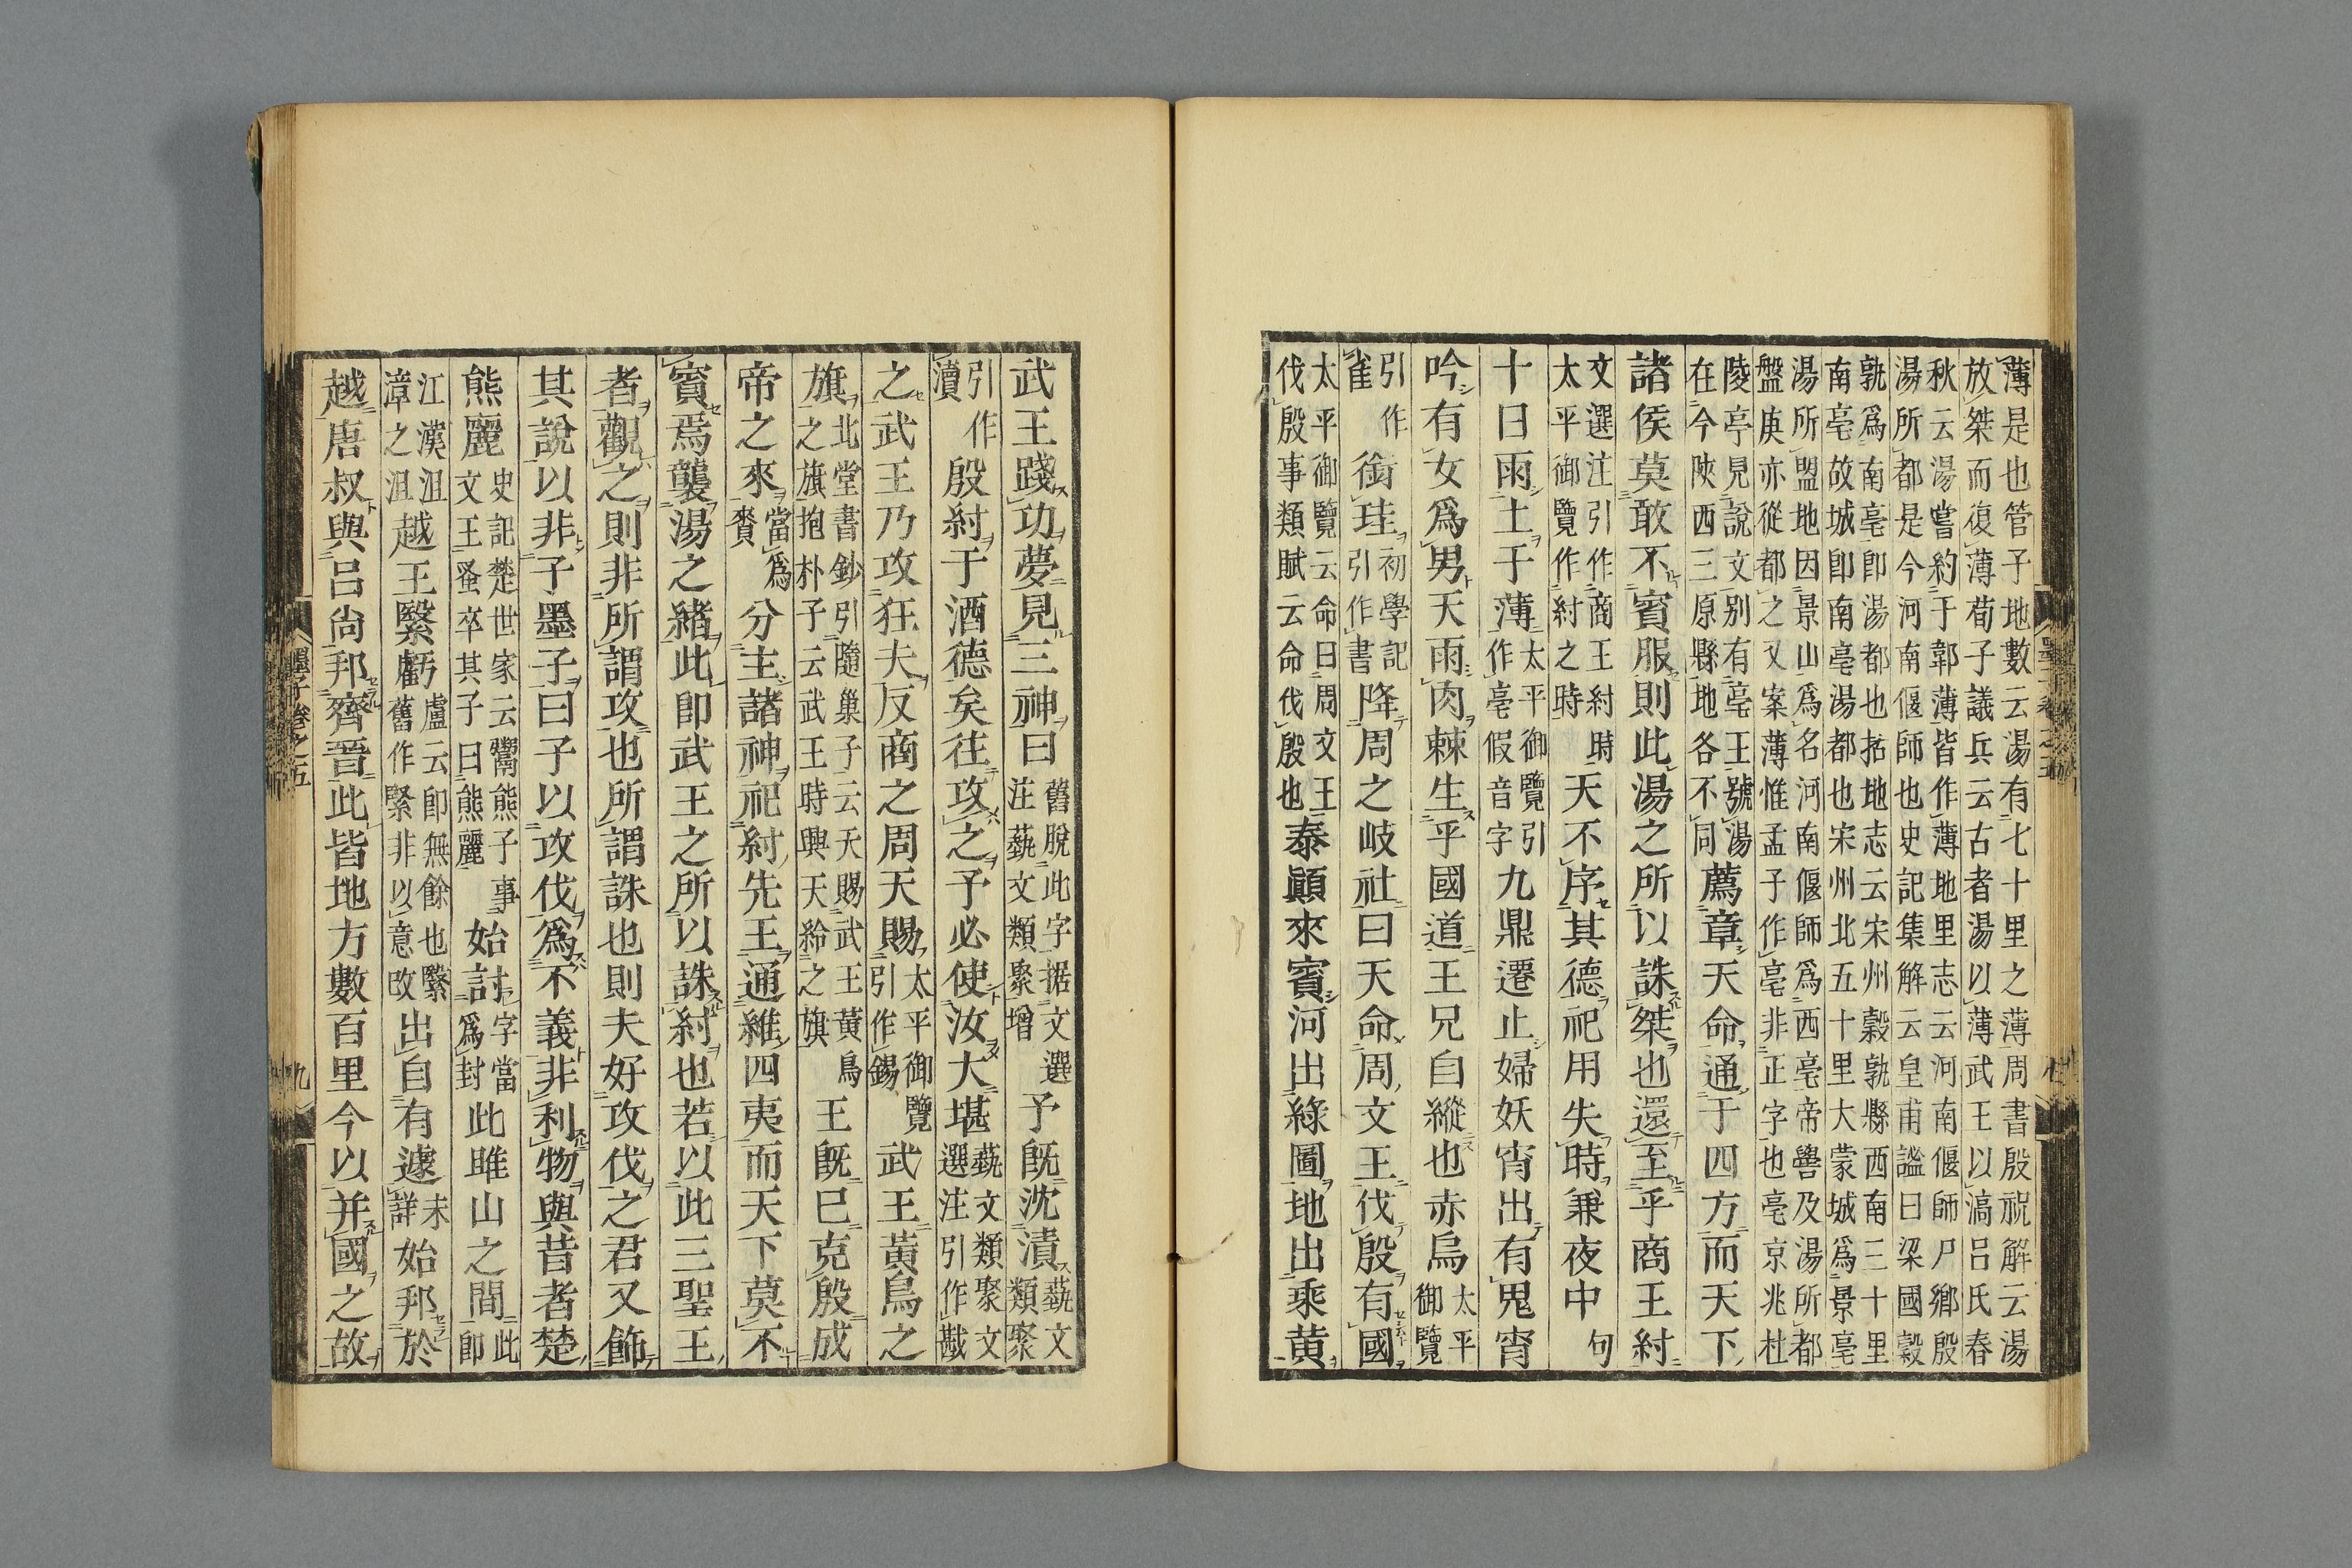 薄是也管子地數云湯有七十里之薄周書殷祝解云湯
放桀而復薄荀子議兵云古者湯以薄武王以滈呂氏春
秋云湯嘗約于郼薄皆作薄地里志云河南偃師尸鄉殷
湯所都是今河南偃師也史記集解云皇甫謐曰梁國穀
孰爲南亳卽湯都也括地志云宋州穀孰縣西南三十里
南亳故城卽南亳湯都也宋州北五十里大蒙城爲景亳
湯所盟地因景山爲名河南偃師爲西亳帝嚳及湯所都
盤庚亦從都之又案薄惟孟子作亳非正字也亳京兆杜
陵亭見說文別有亳王號湯在今陜西三原縣地各不同薦章天命通于四方而天下
諸侯莫敢不賓服則此湯之所以誅桀也還至乎商王紂
文選注引作商王紂時太平御覽作紂之時天不序其德祀用失時兼夜中句
十日雨土于薄太平御覽引作亳假音字九鼎遷止婦妖宵出有鬼宵
吟有女爲男天雨肉棘生乎國道王兄自縱也赤烏太平御覽
引作雀銜珪初學記引作書降周之岐社曰天命周文王伐殷有國
太平御覽云命曰周文王伐殷事類賦云命伐殷也泰顚來賓河出綠圖地出乘黃
武王踐功夢見三神曰舊脫此字据文選注藝文類聚增予既沈漬藝文類聚
引作瀆殷紂于酒德矣往攻之予必使汝大堪藝文類聚文選注引作戡
之武王乃攻狂夫反商之周天賜太平御覽引作錫武王黃鳥之
旗北堂書鈔引隨巢子云天賜武王黃鳥之旗抱朴子云武王時興天給之旗王既巳克殷成
帝之來當爲賚分主諸神祀紂先王通維四夷而天下莫不
賓焉襲湯之緒此卽武王之所以誅紂也若以此三聖王
者觀之則非所謂攻也所謂誅也則夫好攻伐之君又飾
其說以非子墨子曰子以攻伐爲不義非利物與昔者楚
熊麗史記楚世家云鬻熊子事文王蚤卒其子曰熊麗始討字當爲封此雎山之間此卽
江漢沮漳之沮越王繄虧盧云卽無餘也繄舊作緊非以意改出自有遽未詳始邦於
越唐叔與呂尚邦齊晉此皆地方數百里今以并國之故
墨子卷之五
九